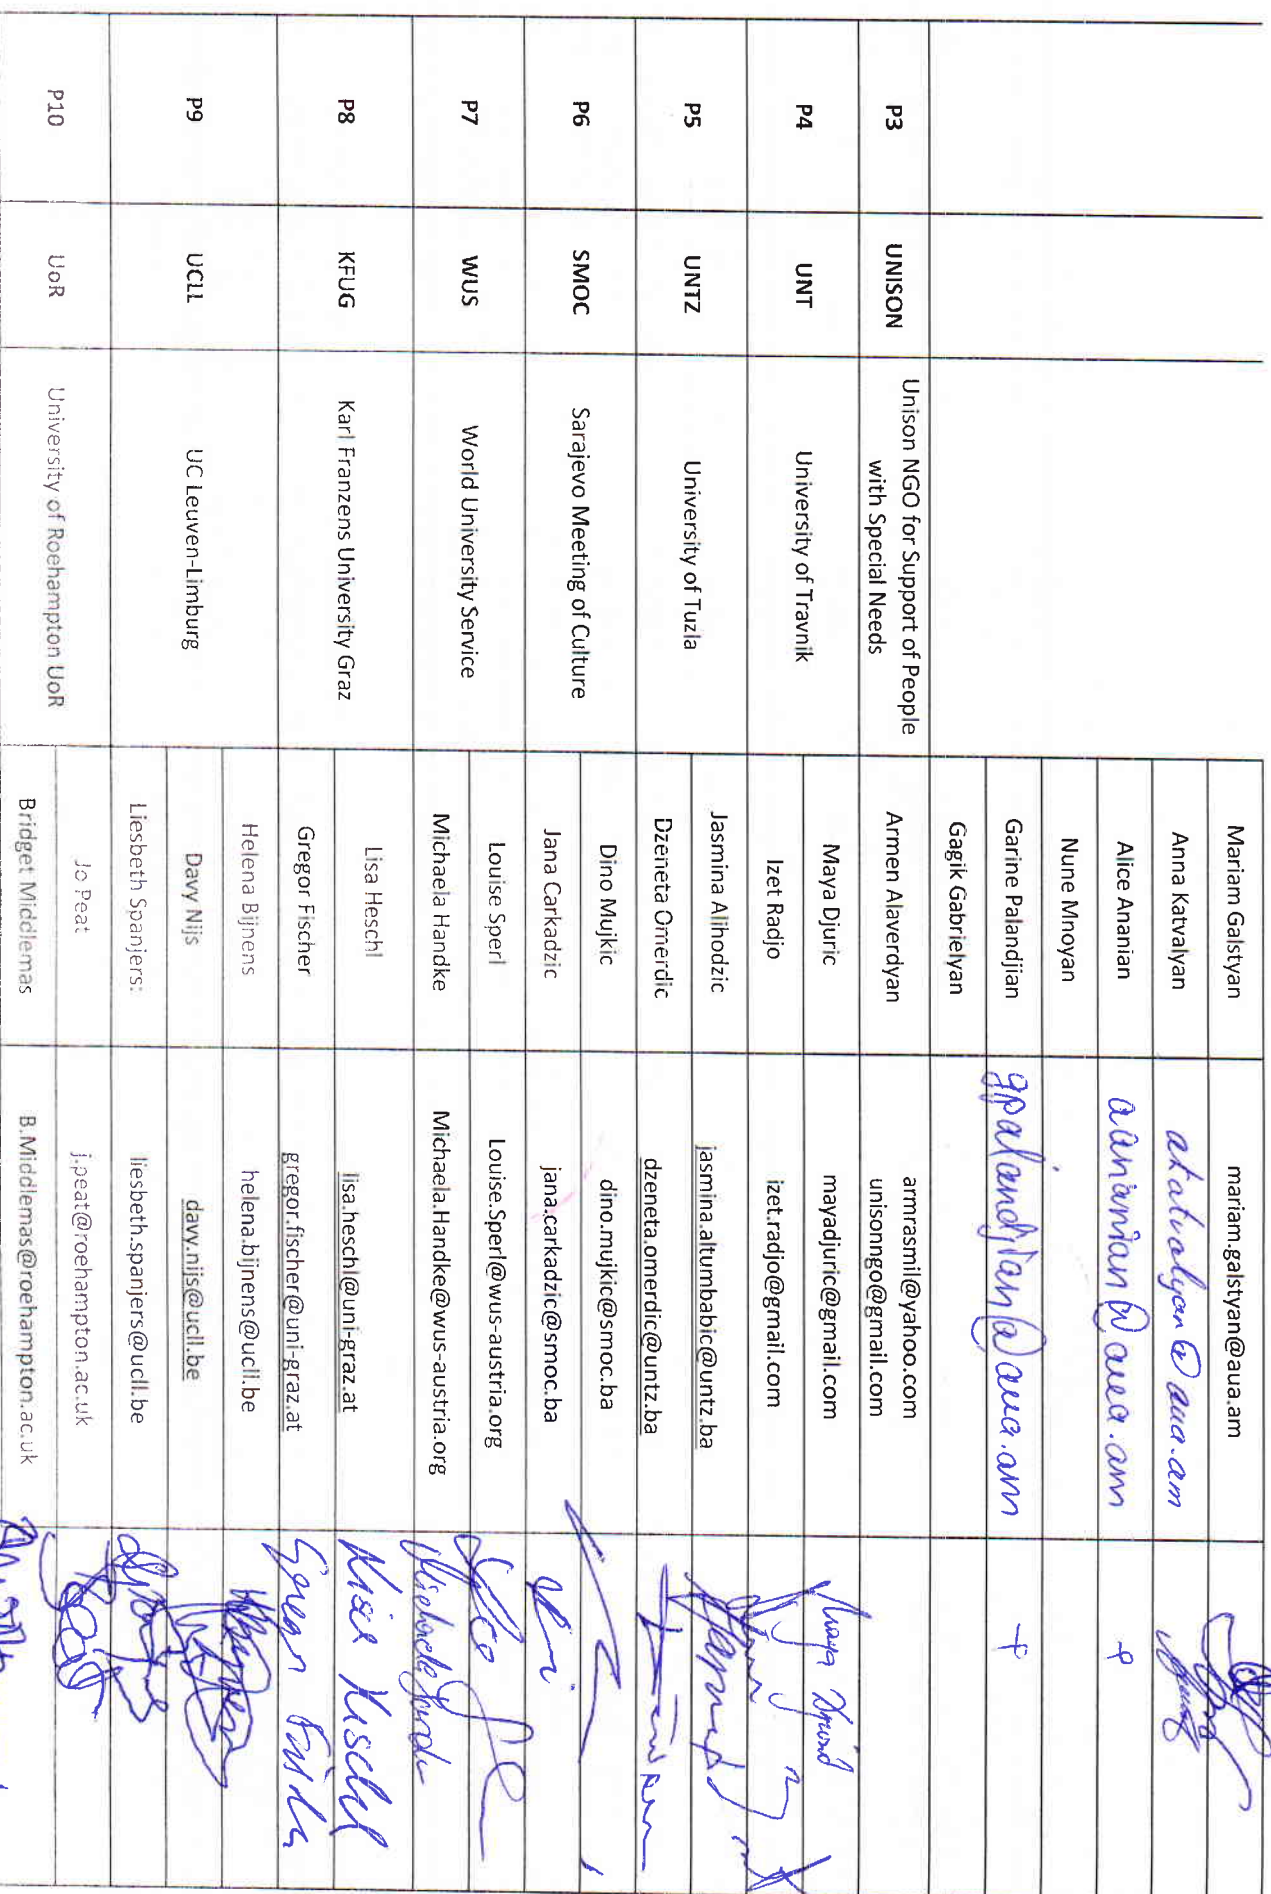 Mariam Galstyan mariam.galstyan@aua.am
Anna Katvalyan akatvalyan@aua.am
Alice Ananian aananian@aua.am
Nune Mnoyan
Garine Palandjian gpalandjian@aua.am
Gagik Gabrielyan
P3 UNISON Unison NGO for Support of People with Special Needs Armen Alaverdyan armrasmil@yahoo.com
unisonngo@gmail.com
P4 UNT University of Travnik Maya Djuric mayadjuric@gmail.com Maya Djuric
Izet Radjo izet.radjo@gmail.com
P5 UNTZ University of Tuzla Jasmina Alihodzic jasmina.altumbabic@untz.ba
Dzeneta Omerdic dzeneta.omerdic@untz.ba
P6 SMOC Sarajevo Meeting of Culture Dino Mujkic dino.mujkic@smoc.ba
Jana Carkadzic jana.carkadzic@smoc.ba
P7 WUS World University Service Louise Sperl Louise.Sperl@wus-austria.org
Michaela Handke Michaela.Handke@wus-austria.org
P8 KFUG Karl Franzens University Graz Lisa Heschl lisa.heschl@uni-graz.at
Gregor Fischer gregor.fischer@uni-graz.at
P9 UCLL UC Leuven-Limburg Helena Bijnens helena.bijnens@ucll.be
Davy Nijs davy.nijs@ucll.be
Liesbeth Spanjers: liesbeth.spanjers@ucll.be
P10 UoR University of Roehampton UoR Jo Peat j.peat@roehampton.ac.uk
Bridget Middlemas B.Middlemas@roehampton.ac.uk